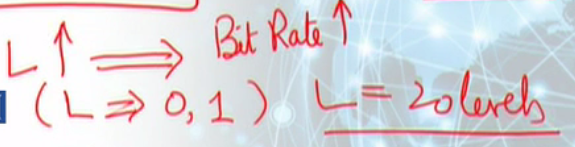 L ↑ ⟹ Bit Rate ↑
(L ⇒ 0, 1) L = 20 levels